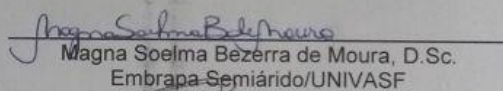 Magna Soelma Bezerra de Moura
Magna Soelma Bezerra de Moura, D.Sc.
Embrapa Semiárido/UNIVASF